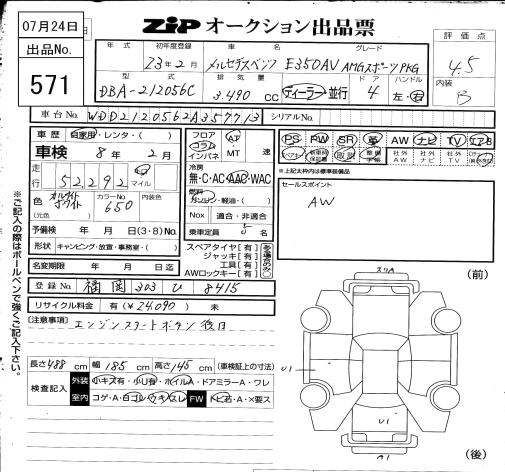 07月24日
出品No.
571
ZIP オークション出品票
評価点
4.5
内装
B
年式 初年度登録 車名 グレード
23年2月 メルセデスベンツ E350AV AMGスポーツPKG
型式 排気量 ドア ハンドル
DBA-212056C 3,490 CC ディーラー 並行 4 左・右
車台No. WDD2120562A357713 シリアルNo.
車歴 自家用・レンタ・( )
車検 8年2月
走行 52,292 km マイル
色 カルサイトホワイト カラーNo. 650 内装色
(元色)
予備検 年 月 日(3・8)No.
形状 キャンピング・放置・事務室・( )
名変期限 年 月 日迄
登録No. 福岡 303 U 8415
リサイクル料金 有(¥24,090) 未
[注意事項] エンジンスタートボタン後日
フロア コラム インパネ AT MT 速
冷房 無・C・AC AAC・WAC
燃料 ガソリン・軽油・( )
Nox 適合・非適合
乗車定員 5名
スペアタイヤ[有]
ジャッキ[有]
工具[有]
AWロックキー[有]
PS PW SR 革 AW ナビ TV エアB
社外AW 社外ナビ 社外TV
※上記太枠内は標準装備品
セールスポイント
AW
※ご記入の際はボールペンで強くご記入下さい。
長さ488cm 幅185cm 高さ145cm (車検証上の寸法)
検査記入 外装 小キズ有・小U有・ホイルA・ドアミラーA・ワレ
室内 コゲ・A・白ゴレ・ウキ・スレ FW トビ石・A・×要ス
(前)
スリA
U1
U1
(後)